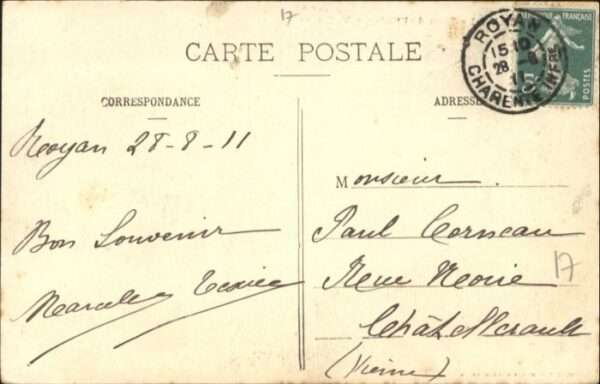 17
CARTE POSTALE
CORRESPONDANCE
ADRESSE
ROYAN
15-10
28 -8
11
CHARENTE INFRE
FRANÇAISE
POSTES
Royan 28-8-11
Bon Souvenir
Marcel
Monsieur
Paul Corneau
Rue Noire
17
Châtellerault
(Vienne)